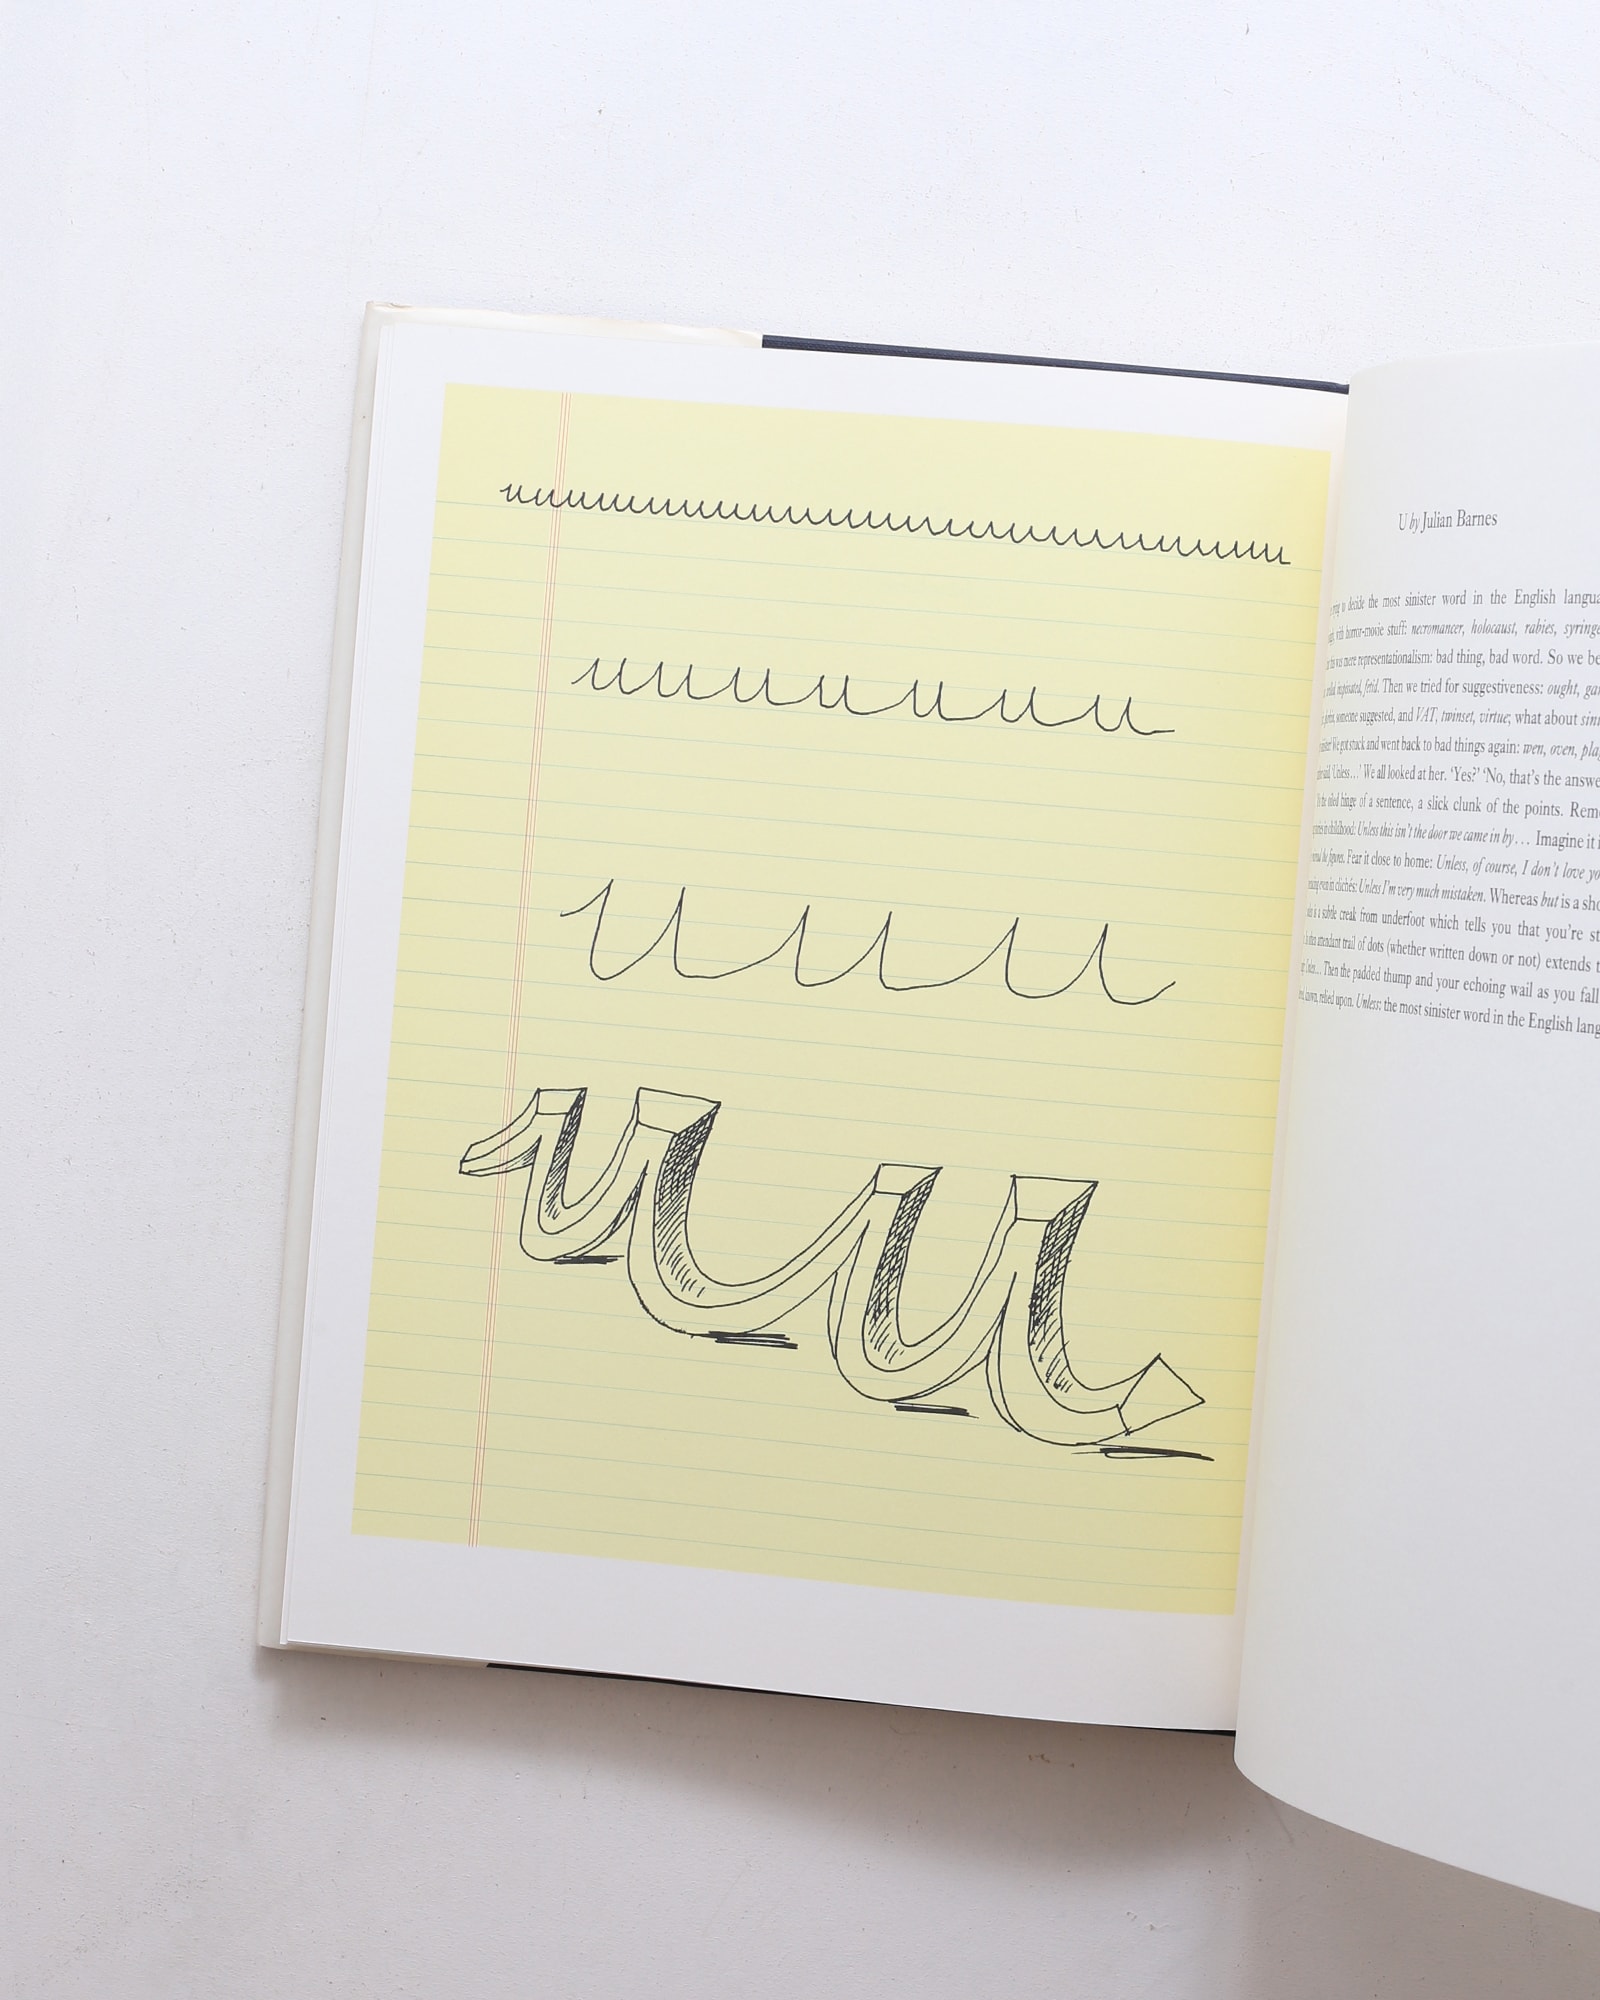 uuuuuuu
uuu
uu
U by Julian Barnes
decide the most sinister word in the English
with horror-movie stuff: necromancer, holocaust, rabies,
this was mere representationalism: bad thing, bad word. So we
fetid. Then we tried for suggestiveness: ought,
someone suggested, and VAT, twinset, virtue; what about
We got stuck and went back to bad things again: wen, oven,
said, 'Unless…' We all looked at her. 'Yes?' 'No, that's the
oiled hinge of a sentence, a slick clunk of the points.
in childhood: Unless this isn't the door we came in by… Imagine it
the figures. Fear it close to home: Unless, of course, I don't love
even in clichés: Unless I'm very much mistaken. Whereas but is a
is a subtle creak from underfoot which tells you that you're
attendant trail of dots (whether written down or not) extends
Then the padded thump and your echoing wail as you fall
relied upon. Unless: the most sinister word in the English